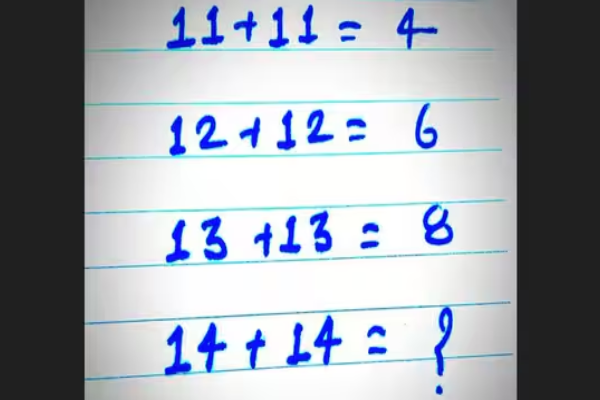 11+11 = 4
12+12 = 6
13+13 = 8
14+14 = ?